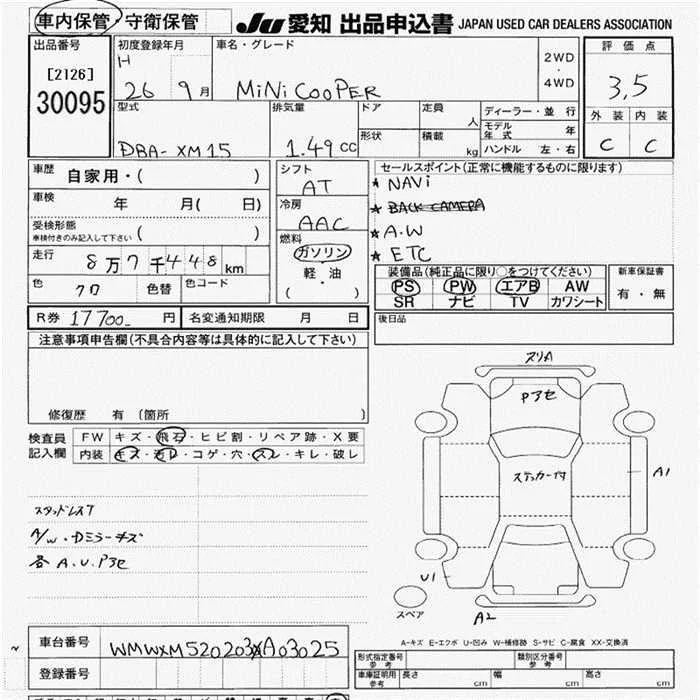 車内保管・守衛保管 JU 愛知 出品申込書 JAPAN USED CAR DEALERS ASSOCIATION
出品番号
[2126]
30095
初度登録年月
H 26 9月
車名・グレード
MiNi COOPER
2WD
・
4WD
評価点
3,5
外装 内装
C C
型式
DBA- XM15
排気量
1.49 CC
ドア
形状
定員
人
積載
kg
ディーラー・並行
モデル年式 年
ハンドル 左・右
車歴 自家用・( )
車検 年 月( 日)
受検形態
車検付きのみ記入して下さい ( )
走行 8万7千448 km
色 クロ 色替 色コード
シフト
AT
冷房
AAC
燃料
ガソリン
軽・油
( ・ )
セールスポイント(正常に機能するものに限ります)
★ NAVi
★ BACK CAMERA
★ A.W
★ ETC
装備品(純正品に限り○をつけてください)
PS PW エアB AW
SR ナビ TV カワシート
新車保証書
有・無
R券 17700 円 名変通知期限 月 日
後日品
注意事項申告欄(不具合内容等は具体的に記入して下さい)
修復歴 有 (箇所 )
検査員記入欄
FW キズ・飛石・ヒビ割・リペア跡・X要
内装 キズ・汚レ・コゲ・穴・スレ・キレ・破レ
スタッドレスT
A/W・Dミラーキズ
各A.U.Pアセ
スリA
Pアセ
ステッカー付
A1
U1
A2
スペア
A-キズ E-エクボ U-凹み W-補修跡 S-サビ C-腐食 XX-交換済
車台番号 WMWXM520203A03025
登録番号
形式指定番号
参考
類別区分番号
参考
車庫証明用
参考
長さ cm 幅 cm 高さ cm